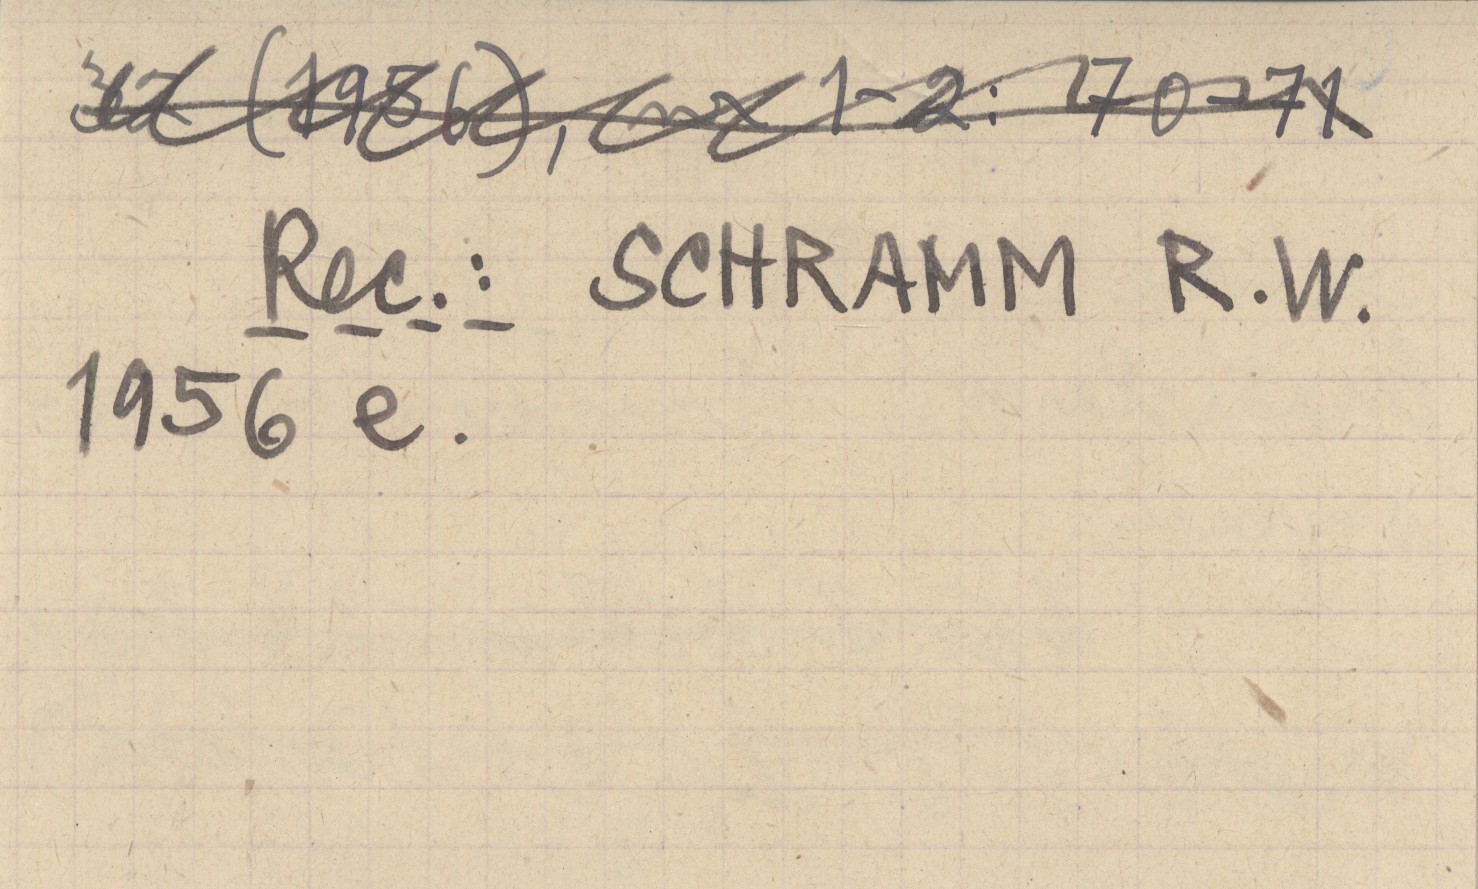 (1956), nr 1-2: 70-71
Rec.: SCHRAMM R.W.
1956 e.